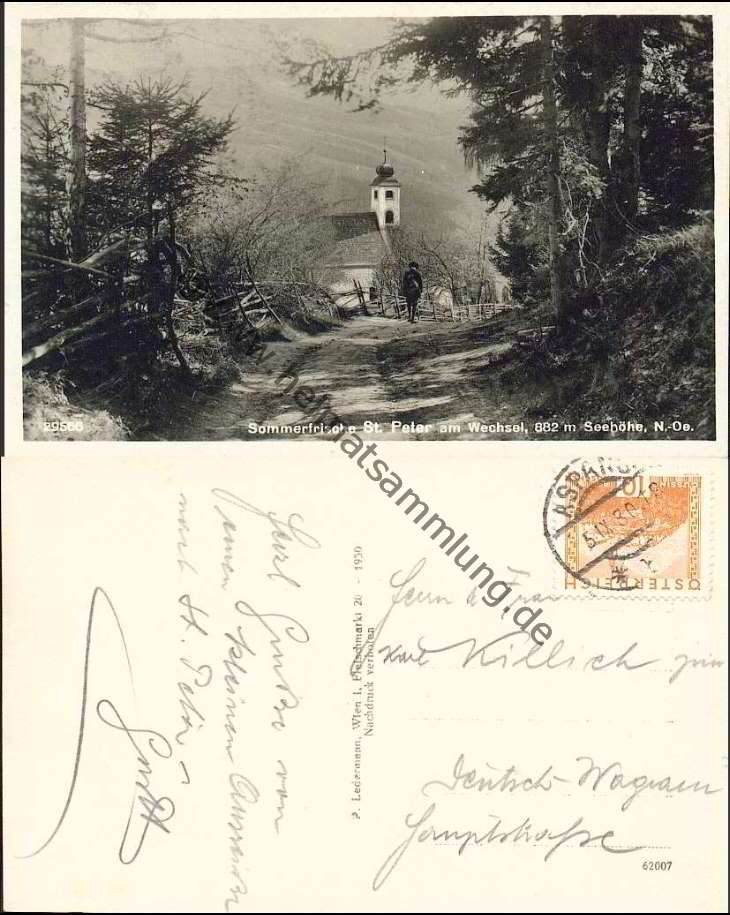 29566
Sommerfrische St. Peter am Wechsel, 882 m Seehöhe, N.-Oe.
www.heimatsammlung.de
Gruße von
kleinen
nach St. Peter
P. Ledermann, Wien I, Fleischmarkt 20 - 1930
Nachdruck verboten
ASPANG
5.IX.30
10
ÖSTERREICH
Herrn & Frau
Karl Killich
Deutsch-Wagram
Hauptstraße
62007